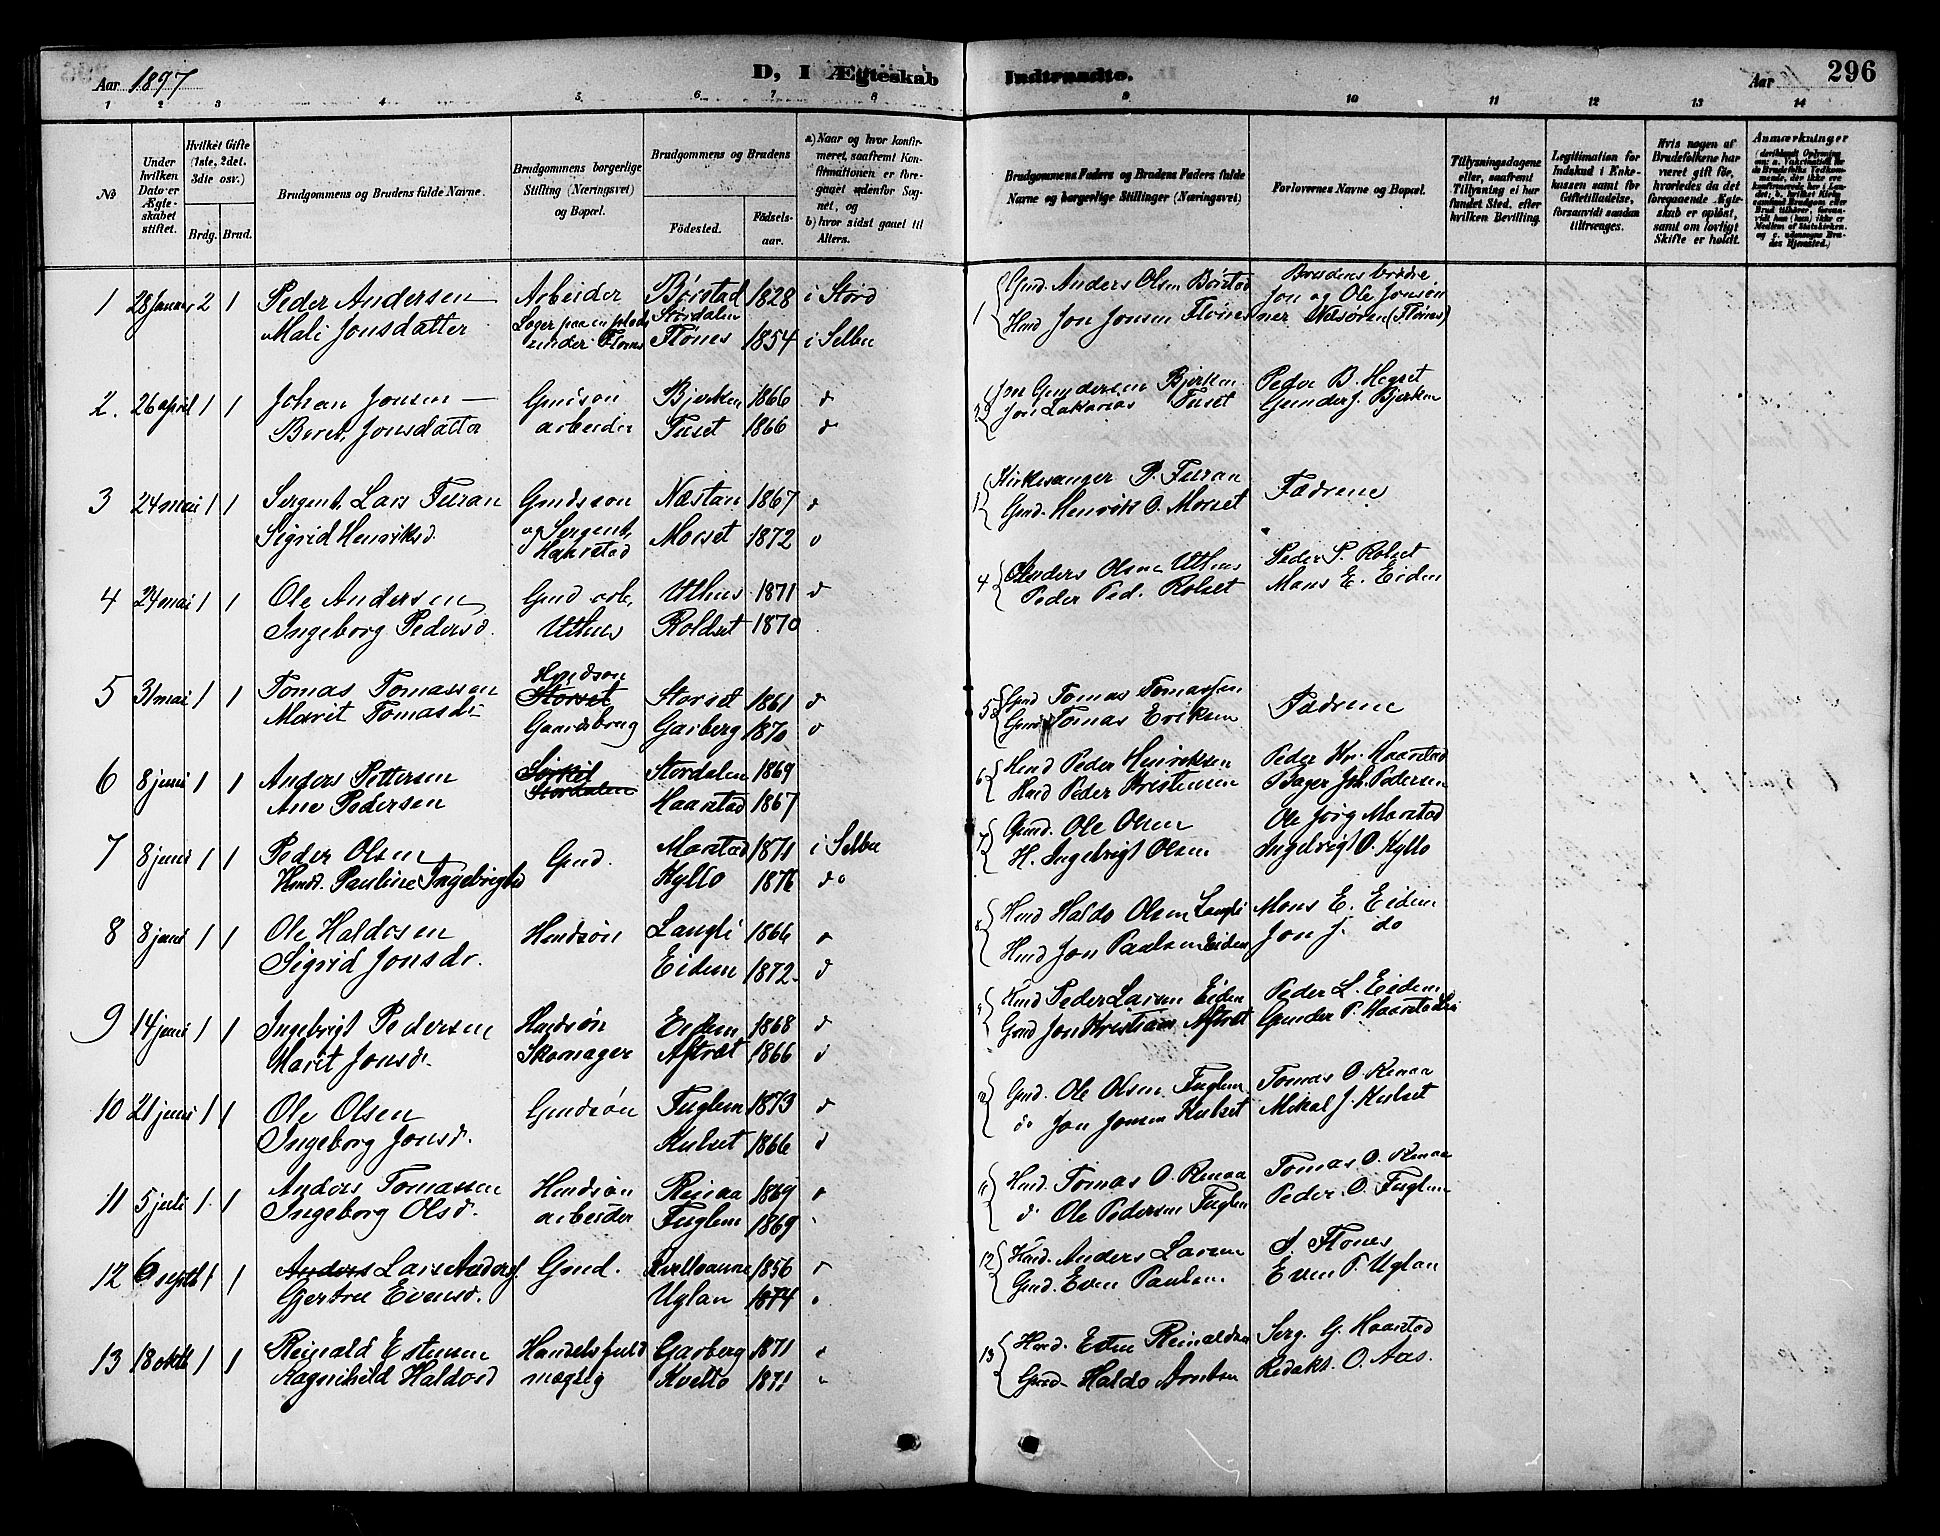 Aar 1897
D, I Ægteskab Indtraadte.
Aar
296
1 2 3 4 5 6 7 8 9 10 11 12 13 14
No
Under hvilken Dato er Ægteskabet stiftet.
Hvilket Gifte (1ste, 2det, 3die osv.)
Brdg. Brud.
Brudgommens og Brudens fulde Navne.
Brudgommens borgerlige Stilling (Næringsvei) og Bopæl.
Brudgommens og Brudens
Fødested. Fødselsaar.
a) Naar og hvor konfirmeret, saafremt Konfirmationen er foregaaet udenfor Sognet, og
b) hvor sidst gaaet til Alters.
Brudgommens Faders og Brudens Faders fulde Navne og borgerlige Stillinger (Næringsvei)
Forlovernes Navne og Bopæl.
Tillysningsdagene eller, saafremt Tillysning ei har fundet Sted, efter hvilken Bevilling.
Legitimation for Indskud i Enkekassen samt for Giftetilladelse, forsaavidt saadan tiltrænges.
Hvis nogen af Brudefolkene har været gift før, hvorledes da det foregaaende Ægteskab er opløst, samt om lovligt Skifte er holdt.
Anmærkninger
1 28 Januar 2 1 Peder Andersen Arbeider Børstad Stordalen 1828 i Stord
Mali Jonsdatter under Flønes Flønes 1854 i Selbu
1 Gmd. Anders Olsen Børstad
Hmd Jon Jonsen Flønes
Brudens brødre
Jon og Ole Jonsøn
(Flønes)
2. 26 april 1 1 Johan Jonsen Gmdsøn Bjerken 1866 d
Beret Jonsdatter arbeider Tuset 1866 d
2 Jon Gundersen Bjerken
Jon Zakarias Tuset
Peder B. Hegset
Gunder J. Bjerken
3 24 mai 1 1 Sergent Lars Furan Gmdssøn Næstan 1867 d
Sigrid Henriksd. og Sergent, Haarstad Morset 1872 d
Kirkesanger P. Furan
Gmd. Henrik O. Morset
Fædrene
4 24 mai 1 1 Ole Andersen Gmd arb. Uthus 1871 d
Ingeborg Pedersd. Uthus Rolset 1870
4 Anders Olsen Uthus
Peder Ped. Rolset
Peder P. Rolset
Mons E. Eidem
5 31 mai 1 1 Tomas Tomassen Hmdsøn Storset Storset 1861 d
Marit Tomasd. Gaardsbrug Garberg 1870 d
5 Gmd Tomas Tomassen
Gmd Tomas Eriksen
Fædrene
6 8 juni 1 1 Anders Pettersen Stordalen Stordalen 1869
Ane Pedersen Haarstad 1867
6 Hmd Peder Henriksen
Hmd Peder Kristensen
Peder Hr. Haarstad
Bager Joh. Pedersen
7 8 juni 1 1 Peder Olsen Gmd. Morstad 1871 i Selbu
Hmd. Pauline Ingebrigtsd Kyllo 1876 do
7 Gmd. Ole Olsen
H. Ingebrigt Olsen
Ole Jørg Morstad
Ingebrigt O. Kyllo
8 8 juni 1 1 Ole Haldosen Hmdsøn Langli 1866 d
Sigrid Jonsdr. Eidem 1872 d
8 Hmd Haldo Olsen Langli
Hmd Jon Paulsen Eidem
Mons E. Eidem
Jon J. do
9 14 juni 1 1 Ingebrigt Pedersen Hmdsøn Eidem 1868 d
Marit Jonsd. Skomager Aftræt 1866 d
Hmd Peder Larsen Eidem
Gmd Jon Kristians Aftræt
Peder L. Eidem
Gunder P. Haarstad
10 21 juni 1 1 Ole Olsen Gmdsøn Fuglem 1873 d
Ingeborg Jonsd. Kulset 1866 d
Gmd. Ole Olsen Fuglem
do Jon Jonsen Kulset
Tomas O. Renaa
Mikal J. Kulset
11 5 juli 1 1 Anders Tomassen Hmdsøn Renaa 1869 d
Ingeborg Olsd. arbeider Fuglem 1869
11 Hmd. Tomas O. Renaa
d Ole Pedersen Fuglem
Tomas O. Renaa
Peder O. Fuglem
12 6 septb 1 1 Anders Lars Anders. Gmd. 1856
Gjertru Evensd. Uglan 1874
12 Hmd. Anders Larsen
Gmd. Even Paulsen
A. Flønes
Even P. Uglan
13 18 oktb 1 1 Reinald Estensen Handelsfuld Garberg 1871
Ragnhild Haldosd mægtig Kvello 1871
13 Hmd. Esten Reinaldsen
Gmd. Haldo Arntsen
Serg. G. Haarstad
Redakt. O. Aas.